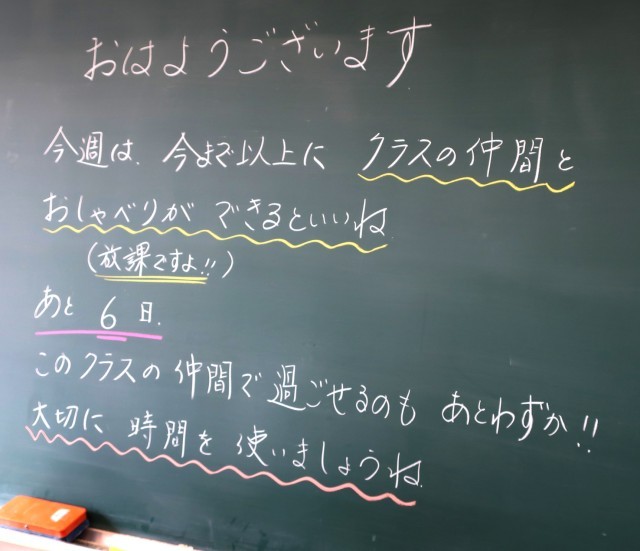 おはようございます
今週は、今まで以上に クラスの仲間と
おしゃべりが できるといいね
(放課ですよ!!)
あと 6 日.
このクラスの仲間で過ごせるのも あとわずか!!
大切に 時間を 使いましょうね